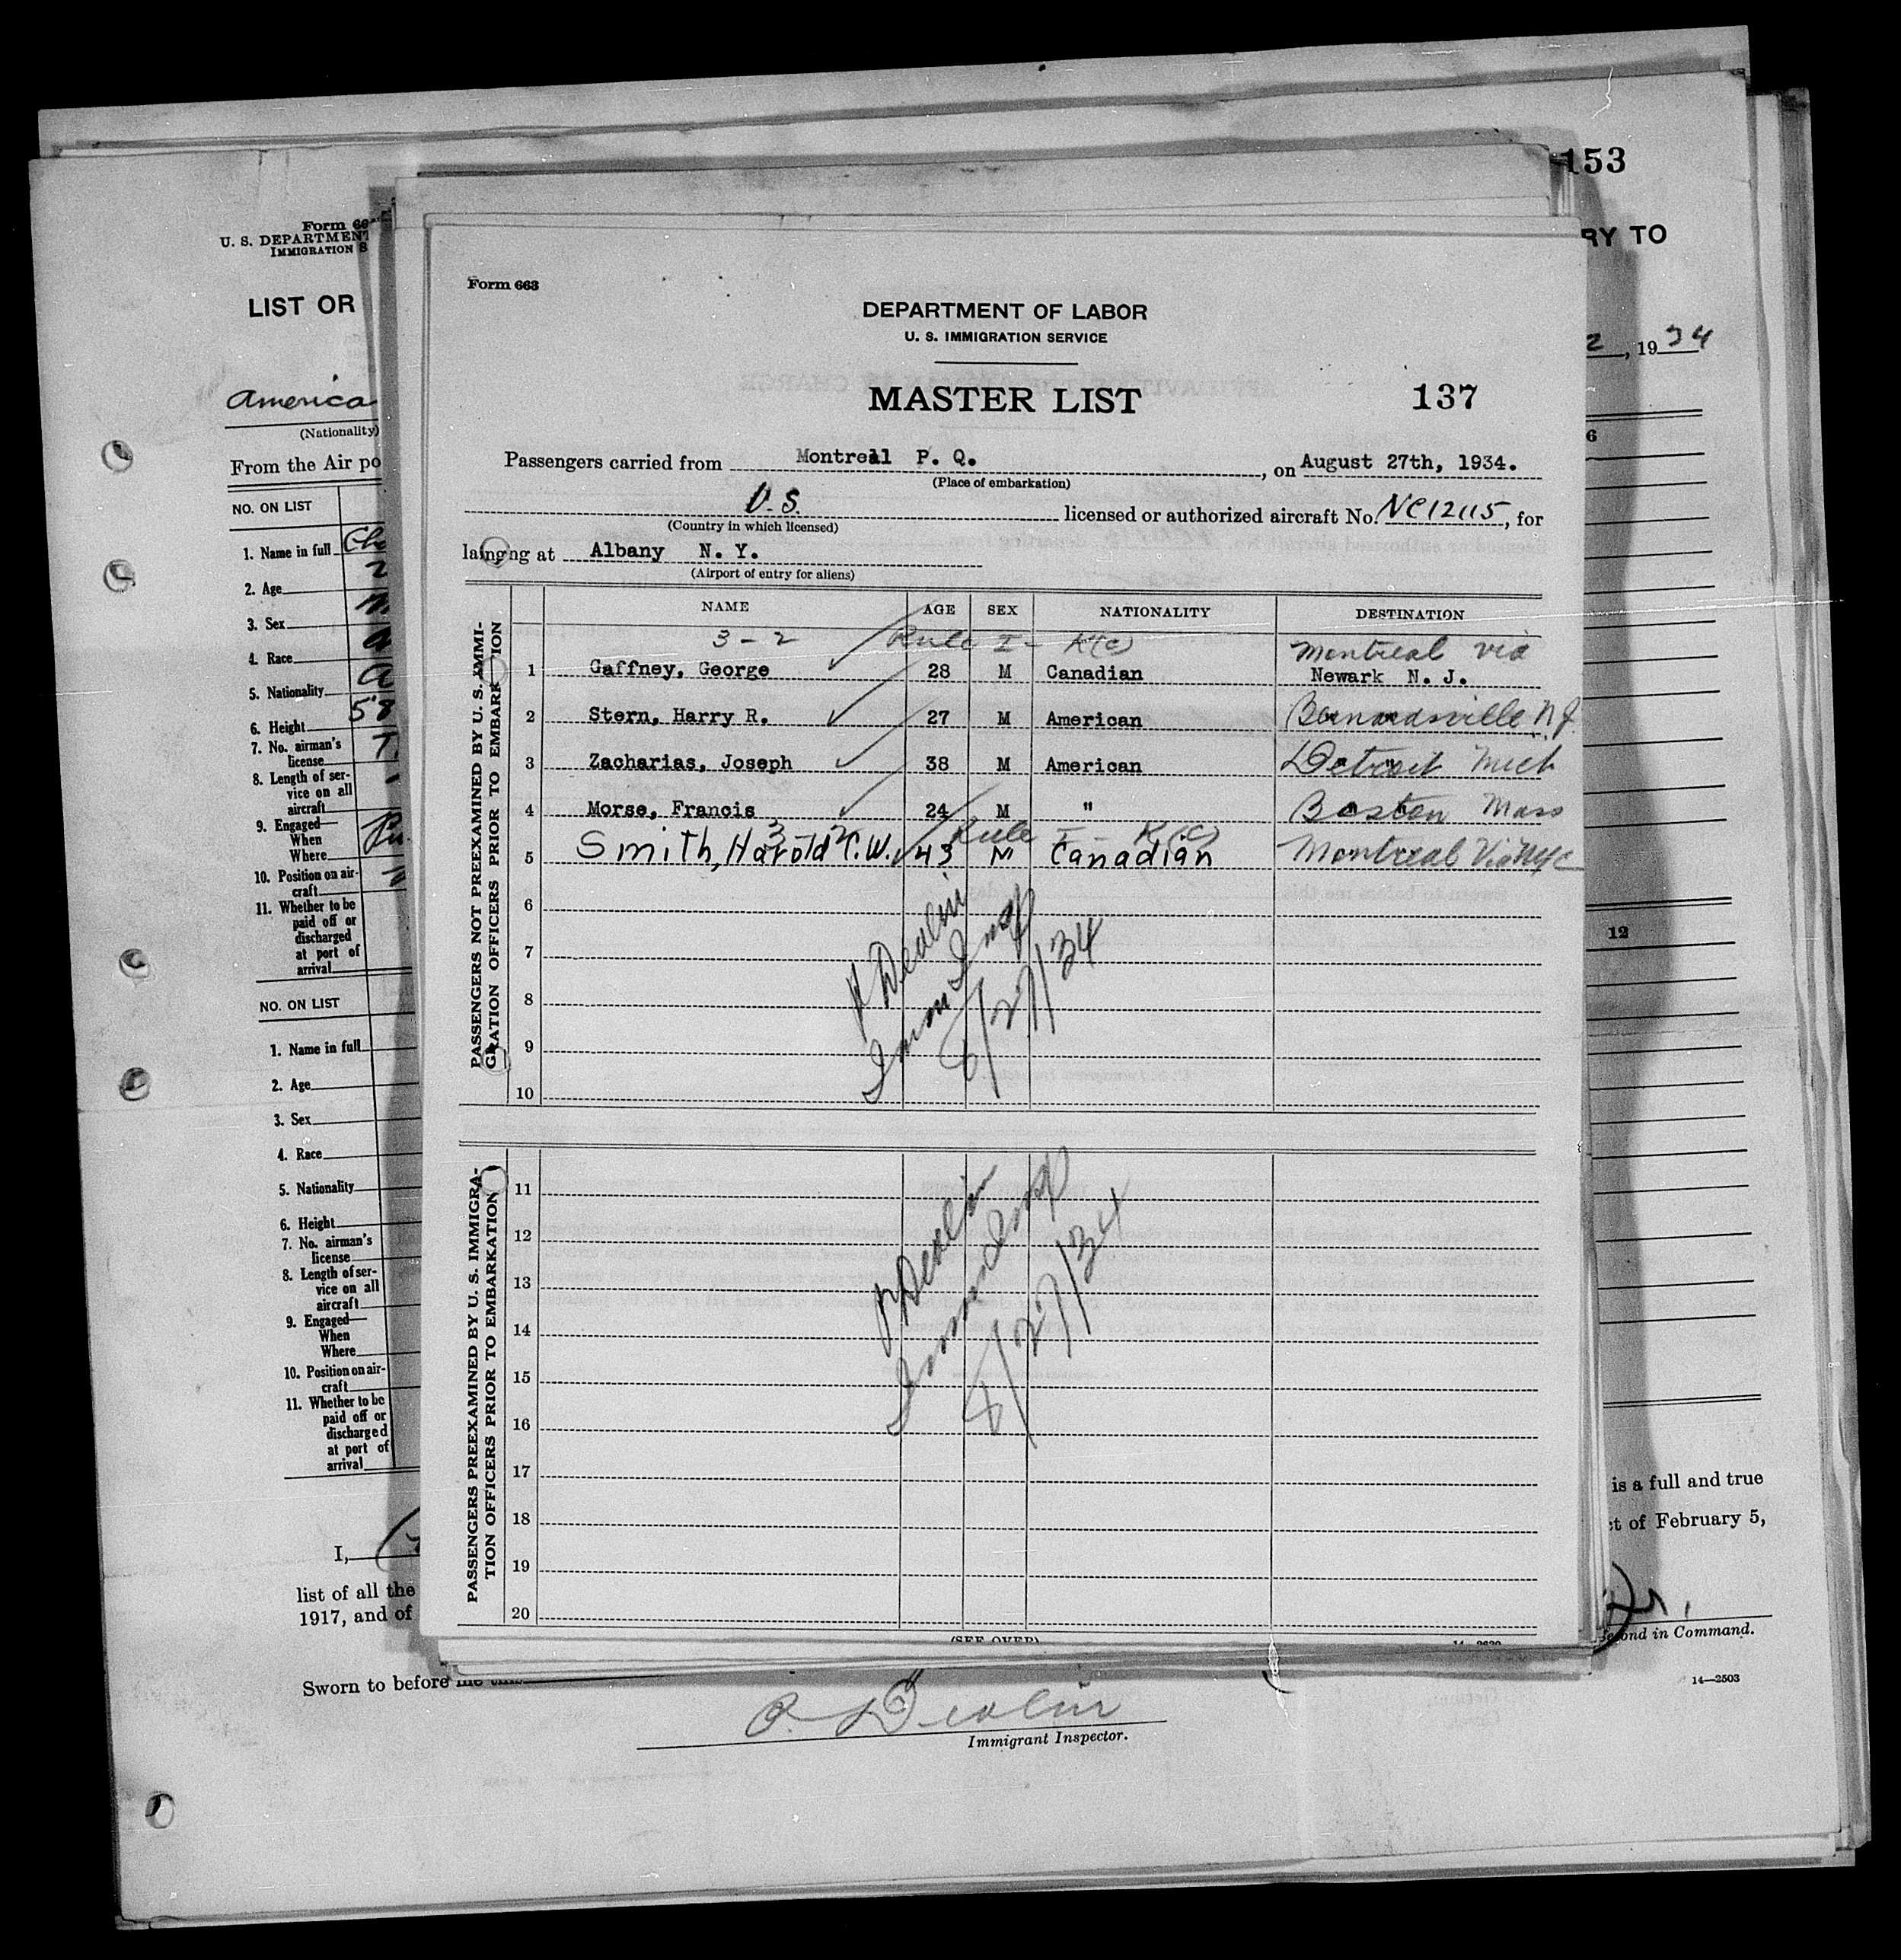 153
RY TO
Form 66
U. S. DEPARTMENT
IMMIGRATION S
LIST OR
2, 1934
America
(Nationality)
From the Air po
NO. ON LIST
6
1. Name in full
2. Age
3. Sex
4. Race
5. Nationality
6. Height 58
7. No. airman's
license
8. Length of ser-
vice on all
aircraft
9. Engaged—
When
Where
10. Position on air-
craft
11. Whether to be
paid off or
discharged
at port of
arrival
12
NO. ON LIST
1. Name in full
2. Age
3. Sex
4. Race
5. Nationality
6. Height
7. No. airman's
license
8. Length of ser-
vice on all
aircraft
9. Engaged—
When
Where
10. Position on air-
craft
11. Whether to be
paid off or
discharged
at port of
arrival
is a full and true
I,
ct of February 5,
list of all the
1917, and of
Second in Command.
Sworn to before me this
14—2503
P. Devlin
Immigrant Inspector.
Form 663
DEPARTMENT OF LABOR
U. S. IMMIGRATION SERVICE
MASTER LIST 137
Passengers carried from Montreal P. Q., on August 27th, 1934.
(Place of embarkation)
U.S. licensed or authorized aircraft No. NC12115, for
(Country in which licensed)
laingng at Albany N. Y.
(Airport of entry for aliens)
NAME AGE SEX NATIONALITY DESTINATION
PASSENGERS NOT PREEXAMINED BY U. S. IMMI-
GRATION OFFICERS PRIOR TO EMBARKATION
3-2 Rule I- K(c) Montreal via
1 Gaffney, George 28 M Canadian Newark N. J.
2 Stern, Harry R. 27 M American Bernardsville N.J.
3 Zacharias, Joseph 38 M American Detroit Mich
4 Morse, Francis 24 M " Boston Mass
3-2 Rule I- K(c)
5 Smith, Harold T.W. 43 M Canadian Montreal Via NYC
6
7
8
9
10
P Devlin
Imm Insp
8/27/34
PASSENGERS PREEXAMINED BY U. S. IMMIGRA-
TION OFFICERS PRIOR TO EMBARKATION
11
12
13
14
15
16
17
18
19
20
P Devlin
Imm Insp
8/27/34
(SEE OVER)